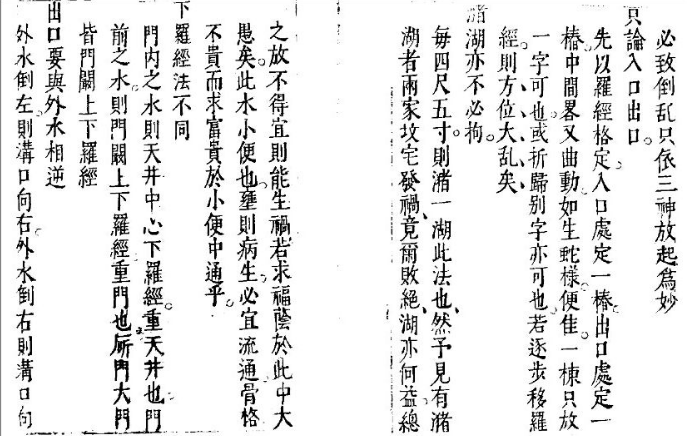 必致倒乱只依三神放起為妙
只論入口出口
先以羅經格定入口處定一樁出口處定一
樁中間畧又曲動如生蛇様便佳一棟只放
一字可也或折歸别字亦可也若逐步移羅
經則方位大乱矣
潴湖亦不必拘
毎四尺五寸則潴一湖此法也然予見有潴
湖者兩家坟宅發禍竟爾敗絕湖亦何益總
之放不得宜則能生禍若求福蔭於此中大
愚矣此水小便也壅則病生必宜流通骨格
不貴而求富貴於小便中通乎
下羅經法不同
門内之水則天井中心下羅經重天井也門
前之水則門闕上下羅經重門也厛門大門
皆門闕上下羅經
出口要與外水相逆
外水倒左則溝口向右外水倒右則溝口向